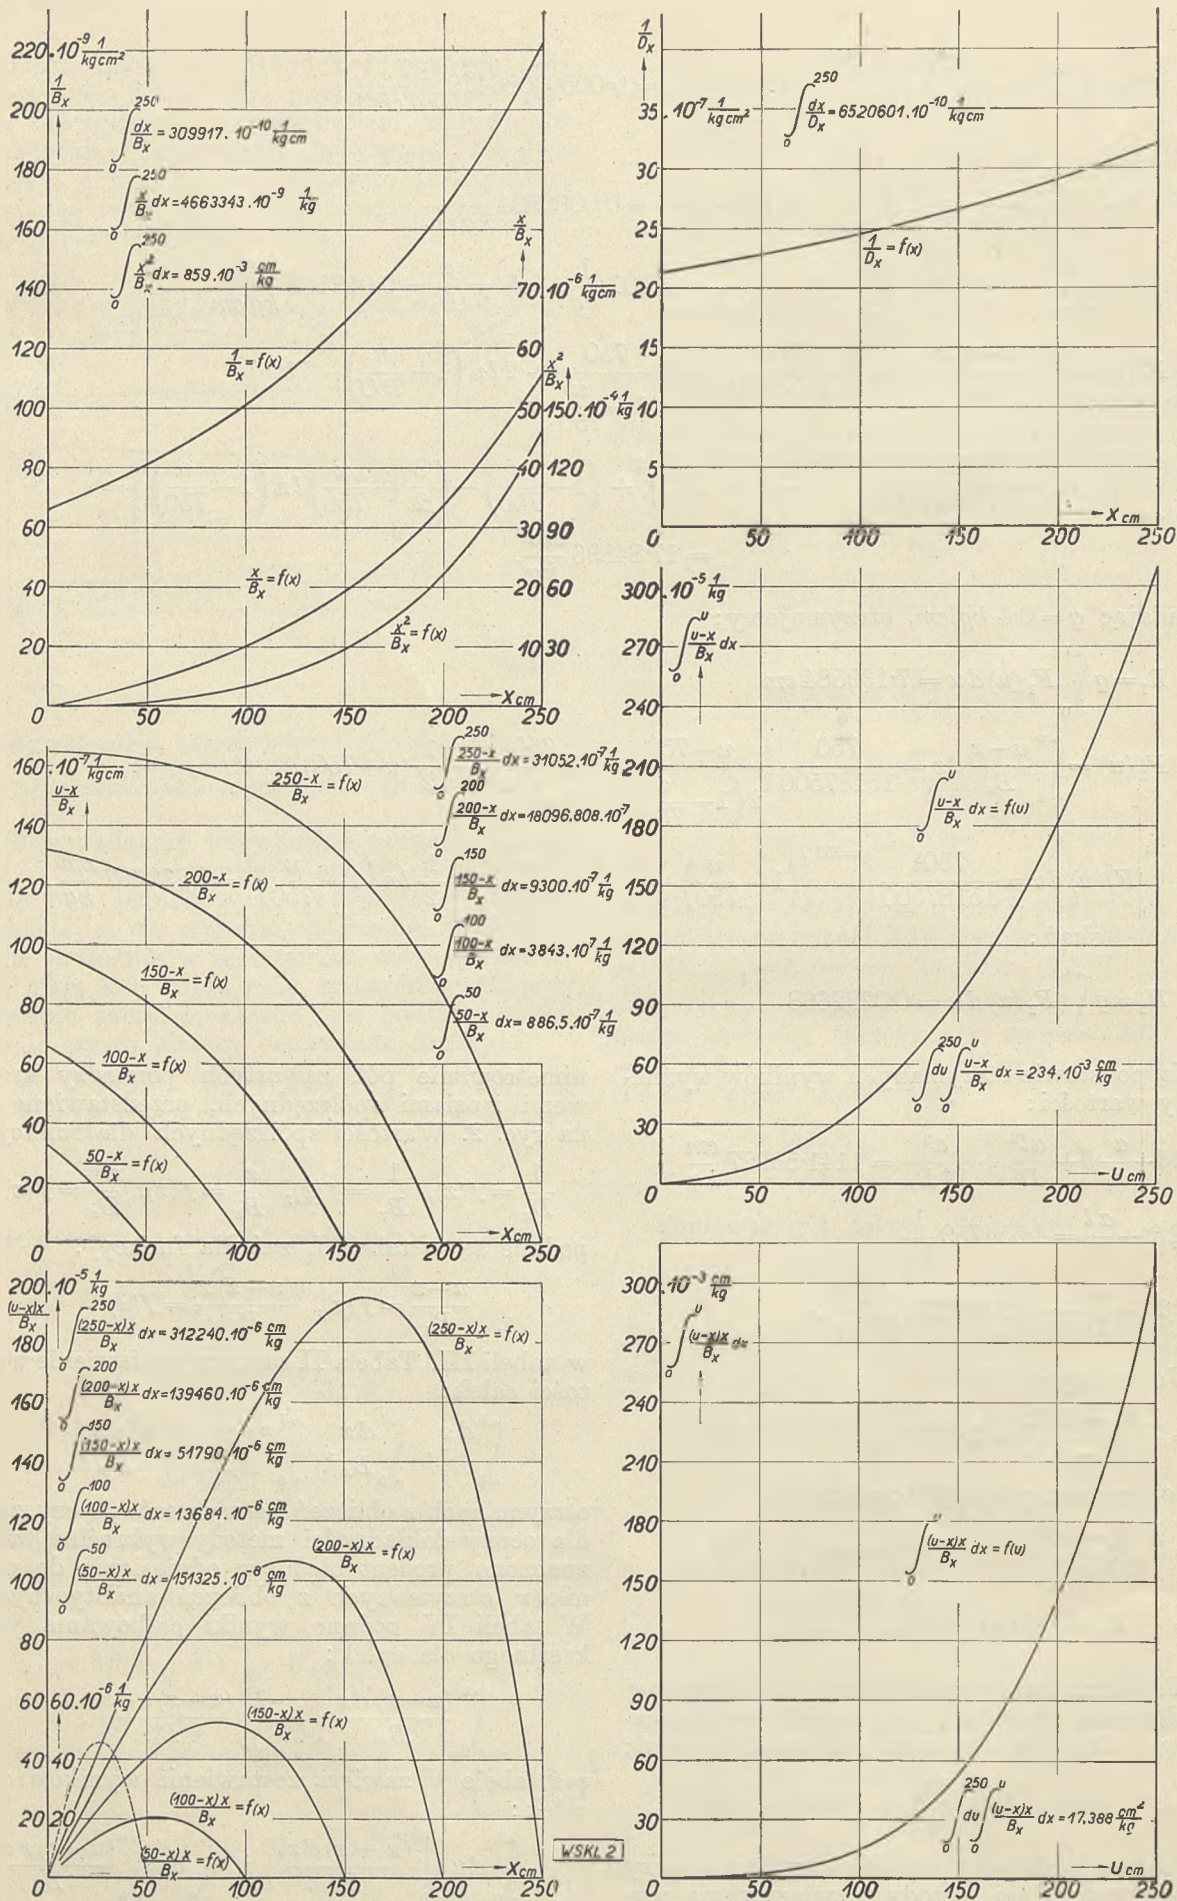 220.10⁻⁹ 1/kgcm²
1/Bx
200
180
160
140
120
100
80
60
40
20
0
∫₀²⁵⁰ dx/Bx = 309917.10⁻¹⁰ 1/kgcm
∫₀²⁵⁰ x/Bx dx = 4663343.10⁻⁹ 1/kg
∫₀²⁵⁰ x²/Bx dx = 859.10⁻³ cm/kg
x/Bx
70.10⁻⁶ 1/kgcm
60
x²/Bx
50 150.10⁻⁴ 1/kg
40 120
30 90
20 60
10 30
1/Bx = f(x)
x/Bx = f(x)
x²/Bx = f(x)
→ X cm
50 100 150 200 250
1/Dx
35 .10⁻⁷ 1/kgcm²
∫₀²⁵⁰ dx/Dx = 6520601.10⁻¹⁰ 1/kgcm
30
25
20
15
10
5
1/Dx = f(x)
→ X cm
0 50 100 150 200 250
160.10⁻⁷ 1/kgcm
u-x/Bx
140
120
100
80
60
40
20
250-x/Bx = f(x)
200-x/Bx = f(x)
150-x/Bx = f(x)
100-x/Bx = f(x)
50-x/Bx = f(x)
∫₀²⁵⁰ 250-x/Bx dx = 31052.10⁻⁷ 1/kg
∫₀²⁰⁰ 200-x/Bx dx = 18096.808.10⁻⁷
∫₀¹⁵⁰ 150-x/Bx dx = 9300.10⁻⁷ 1/kg
∫₀¹⁰⁰ 100-x/Bx dx = 3843.10⁷ 1/kg
∫₀⁵⁰ 50-x/Bx dx = 886,5.10⁻⁷ 1/kg
→ X cm
0 50 100 150 200 250
300.10⁻⁵ 1/kg
270
∫₀ᵘ u-x/Bx dx
240
210
180
150
120
90
60
30
∫₀ᵘ u-x/Bx dx = f(u)
∫₀²⁵⁰ du ∫₀ᵘ u-x/Bx dx = 234.10⁻³ cm/kg
→ U cm
0 50 100 150 200 250
200.10⁻⁵ 1/kg
(u-x)x/Bx
180
160
140
120
100
80
60 60.10⁻⁶ 1/kg
40 40
20 20
∫₀²⁵⁰ (250-x)x/Bx dx = 312240.10⁻⁶ cm/kg
∫₀²⁰⁰ (200-x)x/Bx dx = 139460.10⁻⁶ cm/kg
∫₀¹⁵⁰ (150-x)x/Bx dx = 51790.10⁻⁶ cm/kg
∫₀¹⁰⁰ (100-x)x/Bx dx = 13684.10⁻⁶ cm/kg
∫₀⁵⁰ (50-x)x/Bx dx = 151325.10⁻⁸ cm/kg
(250-x)x/Bx = f(x)
(200-x)x/Bx = f(x)
(150-x)x/Bx = f(x)
(100-x)x/Bx = f(x)
(50-x)x/Bx = f(x)
→ X cm
0 50 100 150 200 250
WSKL 2
300.10⁻³ cm/kg
270
∫₀ᵘ (u-x)x/Bx dx
240
210
180
150
120
90
60
30
∫₀ᵘ (u-x)x/Bx dx = f(u)
∫₀²⁵⁰ du ∫₀ᵘ (u-x)x/Bx dx = 17,388 cm²/kg
→ U cm
0 50 100 150 200 250